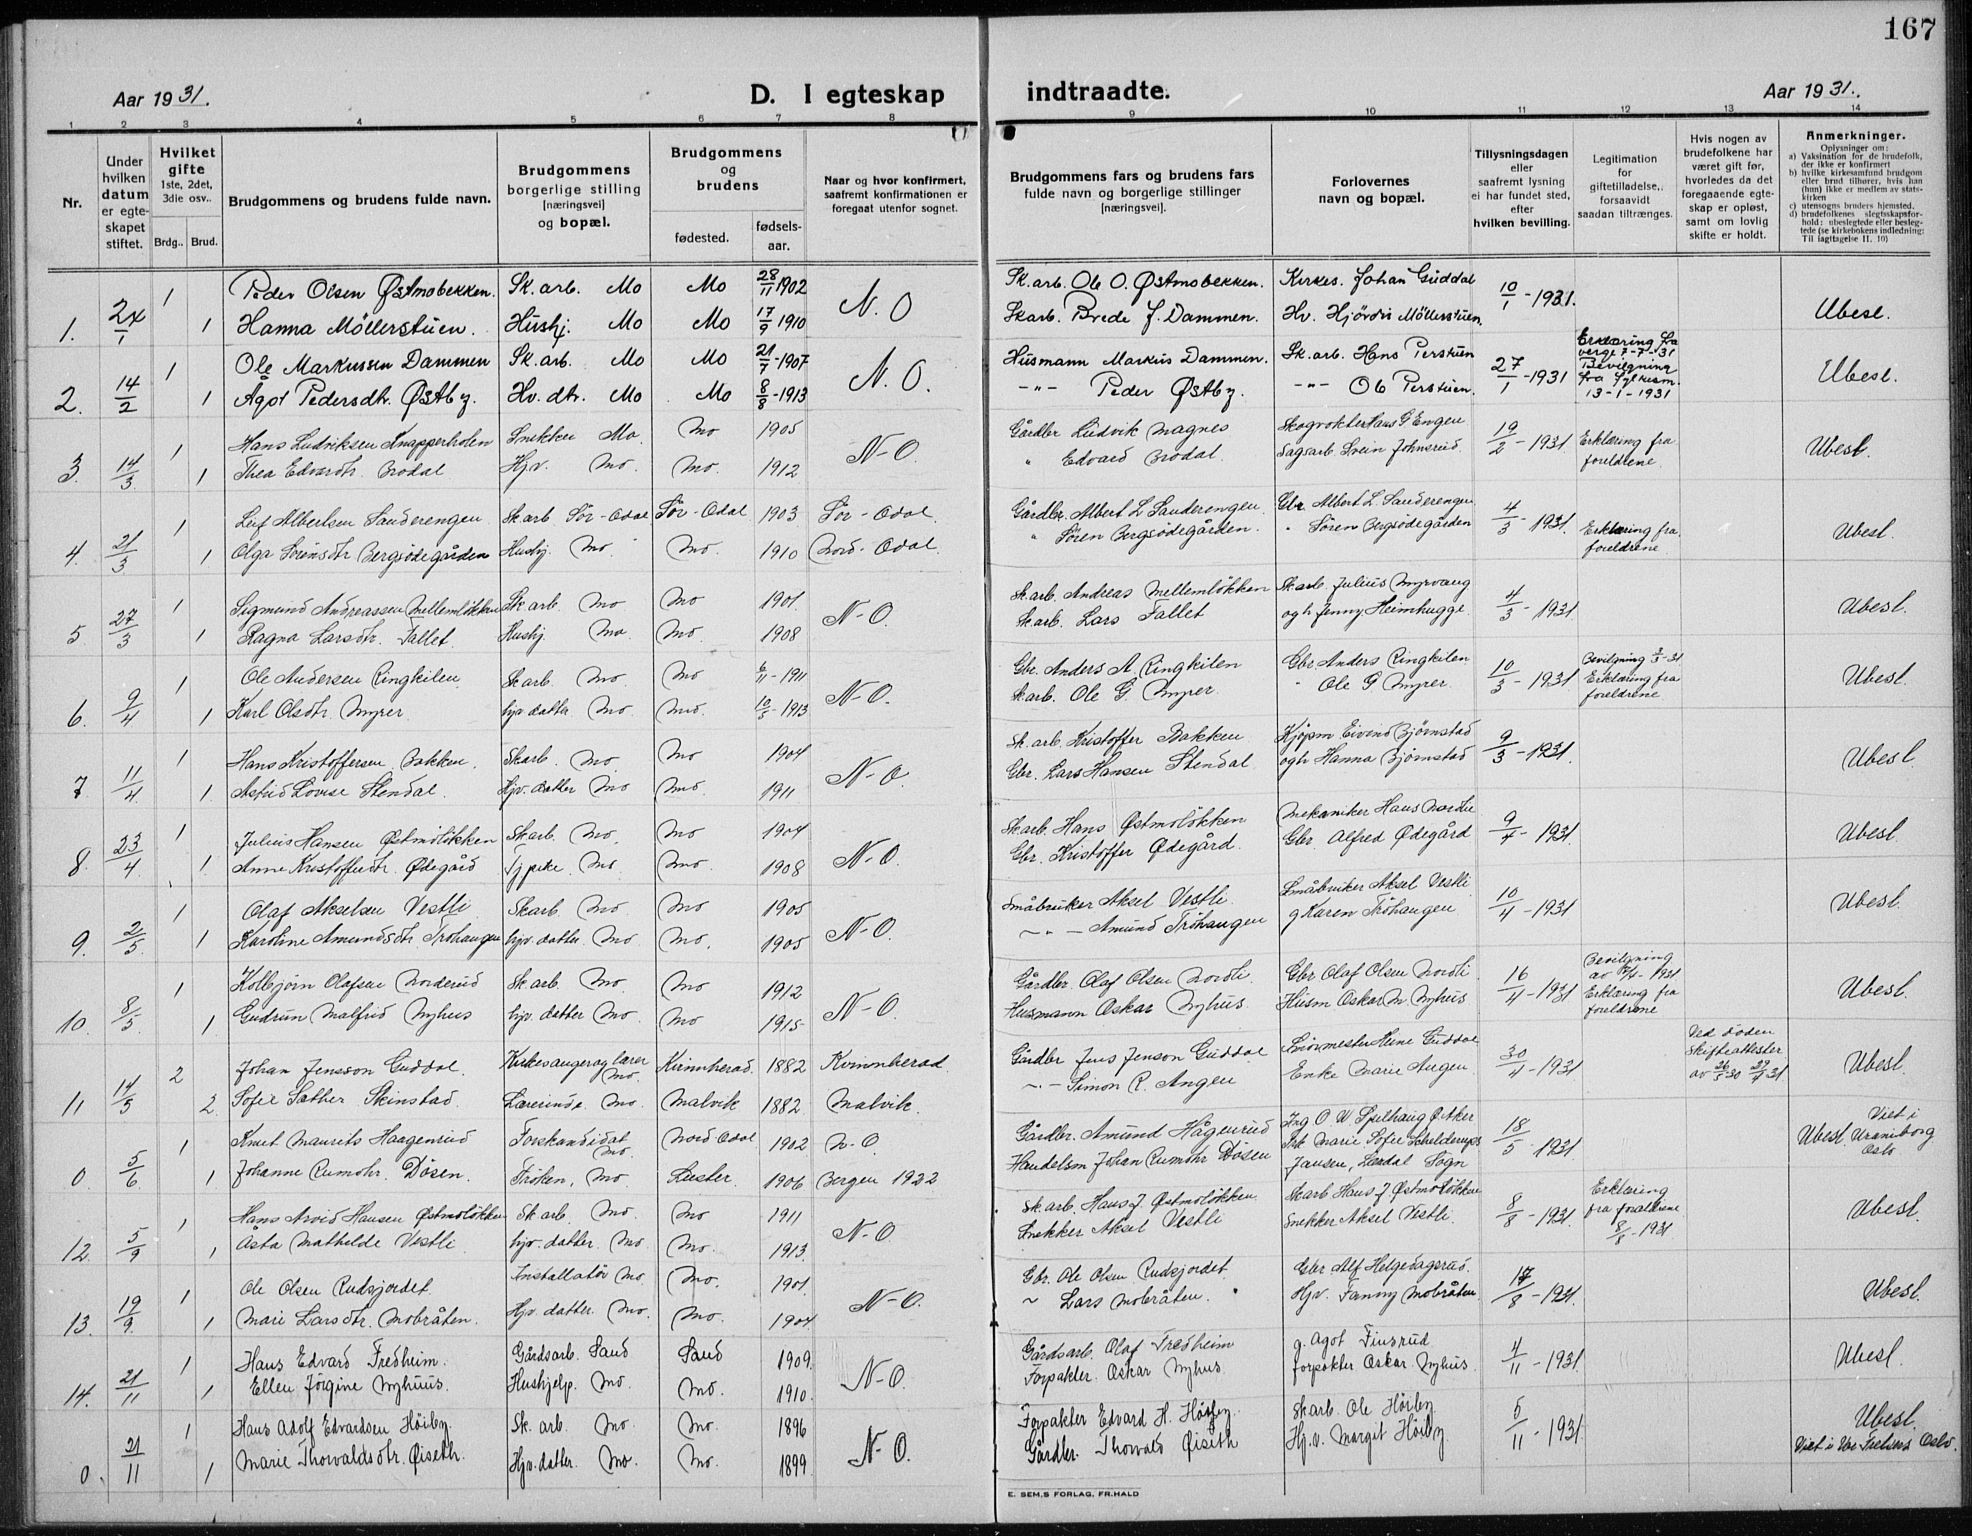 167
Aar 1931.
D. I egteskap indtraadte.
Aar 1931.
1 2 3 4 5 6 7 8 9 10 11 12 13 14
Nr.
Under hvilken datum er egteskapet stiftet.
Hvilket gifte 1ste, 2det, 3die osv..
Brdg.. Brud.
Brudgommens og brudens fulde navn.
Brudgommens borgerlige stilling [næringsvei] og bopæl.
Brudgommens og brudens
fødested. fødsels-aar.
Naar og hvor konfirmert, saafremt konfirmationen er foregaat utenfor sognet.
Brudgommens fars og brudens fars fulde navn og borgerlige stillinger [næringsvei].
Forlovernes navn og bopæl.
Tillysningsdagen eller saafremt lysning ei har fundet sted, efter hvilken bevilling.
Legitimation for giftetilladelse, forsaavidt saadan tiltrænges.
Hvis nogen av brudefolkene har været gift før, hvorledes da det foregaaende egteskap er opløst, samt om lovlig skifte er holdt.
Anmerkninger.
Oplysninger om:
a) Vaksination for de brudefolk, der ikke er konfirmert
b) hvilke kirkesamfund brudgom eller brud tilhører, hvis han (hun) ikke er medlem av statskirken
c) utensogns bruders hjemsted.
d) brudefolkenes slegtsskapsforhold: ubeslegtede eller beslegtede (se kirkebokens indledning: Til iagttagelse II. 10)
1. 24/1 1 Peder Olsen Østmobekken. Sk. arb. Mo Mo 28/11 1902 N. O Sk. arb. Ole O. Østmobekken. Kirkes. Johan Guddal 10/1 - 1931.
1 Hanna Möllerstuen. Hushj. Mo Mo 17/9 1910 Skarb. Brede J. Dammen. Hv. Hjördis Möllerstuen. Ubesl.
2. 14/2 1 Ole Markussen Dammen Sk. arb. Mo Mo 21/7 - 1907 N. O. Husmann Markus Dammen. Sk. arb. Hans Perstuen 27/1 - 1931 Erklæring fra verge 7-7-31 Bevilgning fra fylkesm. 13-1-1931
1 Ågot Pedersdtr. Østby. Hv. dtr. Mo Mo 8/8 - 1913 -"- Peder Østby. -"- Ole Perstuen. Ubesl.
3. 14/3 1 Hans Ludviksen Knapperholen Snekker Mo. Mo 1905 N-O Gårdbr Ludvik Magnes Skogvokter Hans G Engen 19/2 - 1931 Erklæring fra foreldrene.
1 Thea Edvardtr. Brodal Hjv. Mo. Mo. 1912 " Edvard Brodal. Sagarb. Svein Johnsrud. Ubesl.
4. 21/3 1 Leif Albertsen Sanderengen Skarb Sör-Odal Sör-Odal 1903 Sör-Odal. Gårdbr. Albert L Sanderengen Gbr Albert L Sanderengen 4/3 - 1931. Erklæring fra foreldrene.
1 Olga Sörensdtr Bergsödegården Hushj. Mo. Mo. 1910 Nord-Odal. " Sören Bergsödegården. " Sören Bergsödegården Ubesl.
5 27/3 1 Sigmund Andreassen Mellemlökken Sk arb. Mo Mo 1901. N-O. Skarb. Andreas Mellemlökken Skarb Julius Myrvang 4/3 - 1931
1 Ragna Larsdtr. Fallet. Hushj Mo Mo. 1908 Skarb. Lars Fallet og h Jenny Heimhugge. Ubesl.
6. 9/4 1 Ole Andersen Ringkilen. Skarb. Mo Mo 6/11 - 1911 N-O. Gbr. Anders A Ringkilen Gbr Anders Ringkilen 10/3 - 1931 Bevilgning 3/3-31 Erklæring fra foreldrene
1 Karl Olsdtr. Myrer hjv datter Mo Mo. 10/5 - 1913 Skarb. Ole G Myrer " Ole G Myrer. Ubesl.
7 11/4 1 Hans Kristoffersen Bakken. Skarb. Mo Mo 1904 N-O. Sk. arb. Kristoffer Bakken Kjöpm Eivind Bjørnstad 9/3 - 1931.
1. Astrid Lovise Stendal. Hjv. datter Mo Mo. 1911 Gbr. Lars Hansen Stendal ogh Hanna Bjørnstad Ubesl.
8. 23/4 1 Julius Hansen Østmolökken Skarb. Mo. Mo 1904 N-O. Skarb. Hans Østmolökken Mekaniker Hans 9/4 - 1931.
1. Anne Kristofferdtr. Ødegård Mo Mo. 1908 Gbr. Kristoffer Ødegård. Gbr. Alfred Ødegård Ubesl.
9. 2/5 1 Olaf Akselsen Vestli Skarb. Mo Mo 1905 N-O. Småbruker Aksel Vestli. Småbruker Aksel Vestli 10/4 - 1931
1 Karoline Amundsdtr Tröhaugen hjv. datter Mo Mo. 1905 ~"- Amund Tröhaugen g Karen Tröhaugen Ubesl.
10. 8/5 1 Kolbjörn Olafsen Norderud Skarb. Mo. Mo 1912 N-O. Gårdbr Olaf Olsen Nordli Gbr Olaf Olsen Nordli 16/4 - 1931 Bevilgning av 1931 Erklæring fra foreldrene
1 Gudrun Malfrid Nyhus hjv. datter Mo. Mo 1915 Husmann Oskar Nyhus Husm Oskar M Nyhus Ubesl.
11 14/5 2 Johan Jensson Guddal. Kirkesanger og lærer Mo. Kvinnherad. 1882 Kvinnherad Gårdbr Jens Jenson Guddal Guddal 30/4 - 1931 Ved döden Skifteattester av 26/5 30 29/4 31
2. Sofie Sæther Skinstad. Lærerinde. Mo. Malvik 1882 Malvik. ~"- Simon R. Angen Enke Marie Angen. Ubesl.
0. 5/6 1 Knut Maurits Haagenrud Forskandidat Mo. Nord Odal 1902 N-O. Gårdbr. Amund Hågenrud Ing O W Spilhaug Ø. Aker 18/5 - 1931. Viet i Uranienborg Oslo
1 Johanne Rumohr. Dösen. Fröken, Mo. Luster 1906 Bergen 1922 Handelsm Johan Rumohr Dösen Frk Marie Sofie Schelderup Jansen, Lærdal Sogn Ubesl.
12. 5/9 1 Hans Arvid Hansen Østmolökken Skarb. Mo. Mo 1911 N-O. Sk. arb. Hans J. Østmolökken. Skarb Hans J Østmolökken 8/8 - 1931. Erklæring fra foreldrene 8/8 - 1931
1 Åsta Mathilde Vestli hjv. datter. Mo Mo. 1913. Snekker Aksel Vestli Snekker Aksel Vestli. Ubesl.
13. 19/9. 1 Ole Olsen Rudsjordet. Installatör Mo. Mo. 1901 N-O. Gbr. Ole Olsen Rudsjordet. Gbr. Alf Helgedagsrud. 17/8 - 1931.
1 Mari Larsdtr. Mobråten. Hjv. datter. Mo. Mo. 1904 ~ Lars Mobråten. " Hjv. Fanny Mobråten Ubesl.
14. 21/11 1 Hans Edvard Fredheim. Gårdsarb. Sand Sand 1909. N-O. Gårdsarb. Olaf Fredheim g. Agot Finsrud 4/11 - 1931.
1 Ellen Jörgine Nyhuus. Hushjelp. Mo. Mo. 1910. Forpakter. Oskar Nyhus. forpakter Oskar Nyhus. Ubesl.
0. 21/11 1 Hans Adolf Edvardsen Höiby. Sk. arb. Mo Mo. 1896 N-O. Forpakter Edvard H. Höiby. Skarb. Ole Höiby 5/11 - 1931. Ubesl.
1 Marie Thorvaldsdtr. Øiseth. Hjv. datter. Mo. Mo. 1899 Gårdbr. Thorvald Øiseth Hj. v. Margit Höiby Viet i Vor Frelsers Oslo.
E. SEM,S FORLAG, FR.HALD